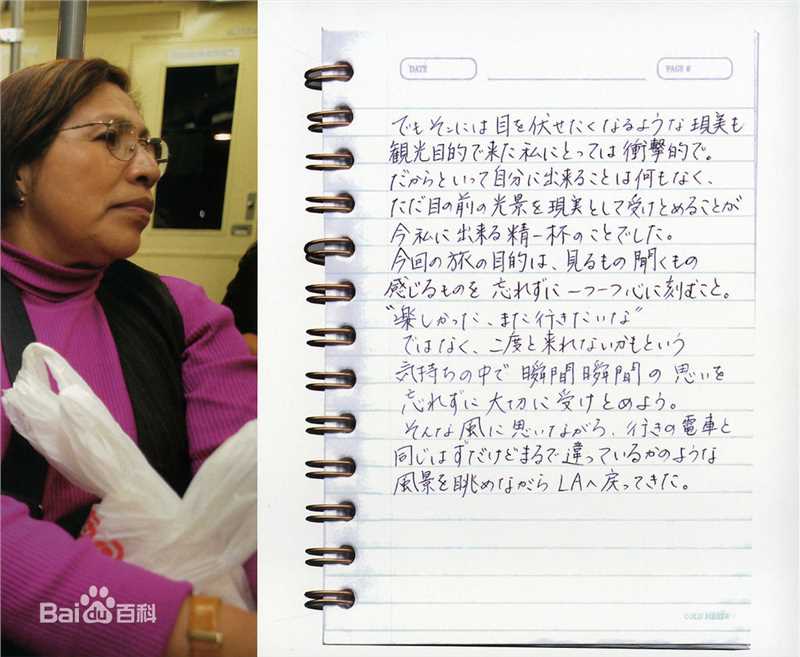 DATE
PAGE #
でもそこには目を伏せたくなるような現実も
観光目的で来た私にとっては衝撃的で。
だからといって自分に出来ることは何もなく、
ただ目の前の光景を現実として受けとめることが
今私に出来る精一杯のことでした。
今回の旅の目的は、見るもの聞くもの
感じるものを忘れずに一つ一つ心に刻むこと。
"楽しかった、また行きたいな"
ではなく、二度と来れないかもという
気持ちの中で瞬間瞬間の思いを
忘れずに大切に受けとめよう。
そんな風に思いながら、行きの電車と
同じはずだけどまるで違っているかのような
風景を眺めながらLAへ戻ってきた。
Baidu百科